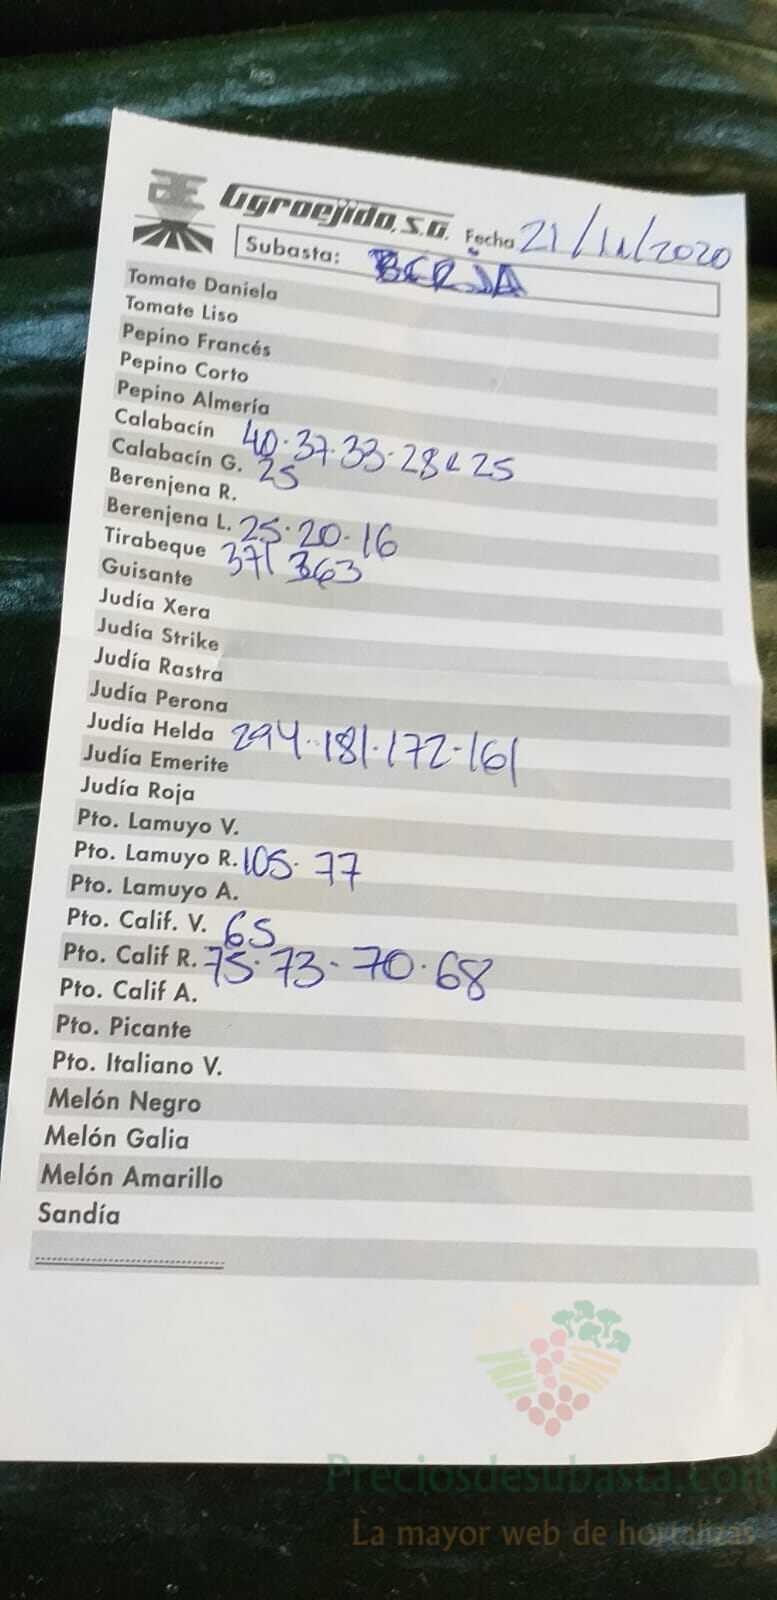 Agroejido, S.A. Fecha 21/11/2020
Subasta: BERJA
Tomate Daniela
Tomate Liso
Pepino Francés
Pepino Corto
Pepino Almería
Calabacín 40.37.33.28 25
Calabacín G. 25
Berenjena R.
Berenjena L. 25.20.16
Tirabeque 371 363
Guisante
Judía Xera
Judía Strike
Judía Rastra
Judía Perona
Judía Helda 294..181.172-161
Judía Emerite
Judía Roja
Pto. Lamuyo V.
Pto. Lamuyo R. 105.77
Pto. Lamuyo A.
Pto. Calif. V. 65
Pto. Calif R. 75.73-70.68
Pto. Calif A.
Pto. Picante
Pto. Italiano V.
Melón Negro
Melón Galia
Melón Amarillo
Sandía
Preciosdesubasta.com
La mayor web de hortalizas